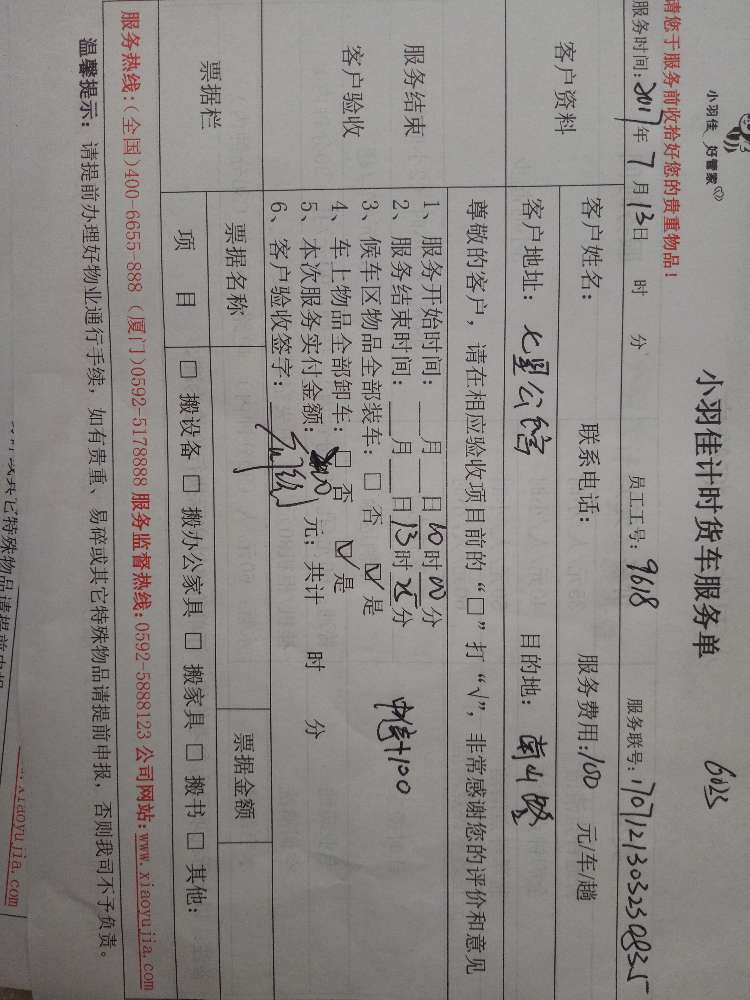 小羽佳 好管家
小羽佳计时货车服务单
6025
请您于服务前收拾好您的贵重物品！
服务时间：2017年7月13日 时 分 员工工号：9618 服务联号：
客户资料
客户姓名： 联系电话： 服务费用：100 元/车/趟
客户地址：七星公馆 目的地：
尊敬的客户，请在相应验收项目前的“□”打“√”，非常感谢您的评价和意见
服务结束
客户验收
1、服务开始时间：___月___日10时00分
2、服务结束时间：___月___日13时25分
3、候车区物品全部装车：□ 否 ☑ 是
4、车上物品全部卸车：□ 否 ☑ 是
5、本次服务实付金额： 元；共计 时 分
6、客户验收签字：
+100
票据栏
票据名称 票据金额
项 目 □ 搬设备 □ 搬办公家具 □ 搬家具 □ 搬书 □ 其他：
服务热线：（全国）400-6655-888（厦门）0592-5178888 服务监督热线：0592-5888123 公司网站：www.xiaoyujia.com
温馨提示：请提前办理好物业通行手续，如有贵重、易碎或其它特殊物品请提前申报，否则我司不予负责。